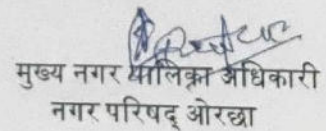 मुख्य नगर पालिका अधिकारी
नगर परिषद् ओरछा